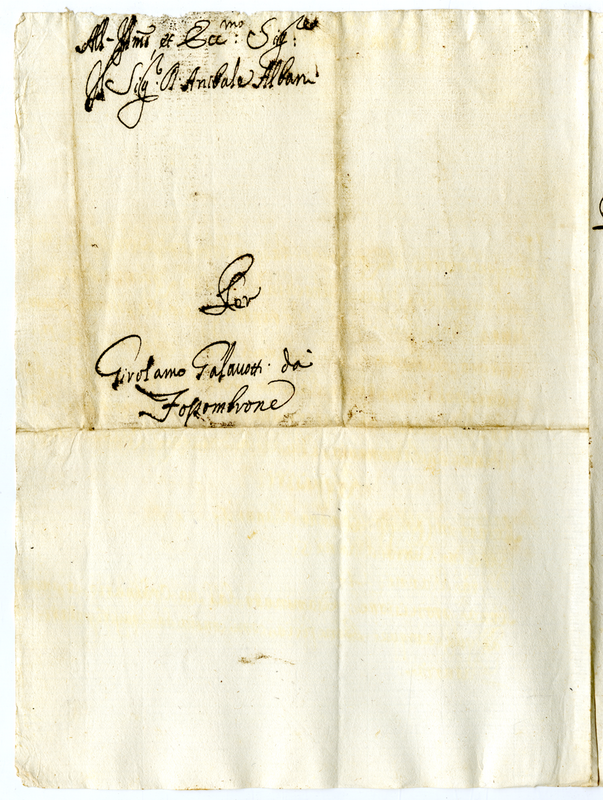 All'Ill.mo et Ecc.mo Sig.re
Il Sig.r D. Anibale Albani
Per
Girolamo Gallavotti da
Fossombrone